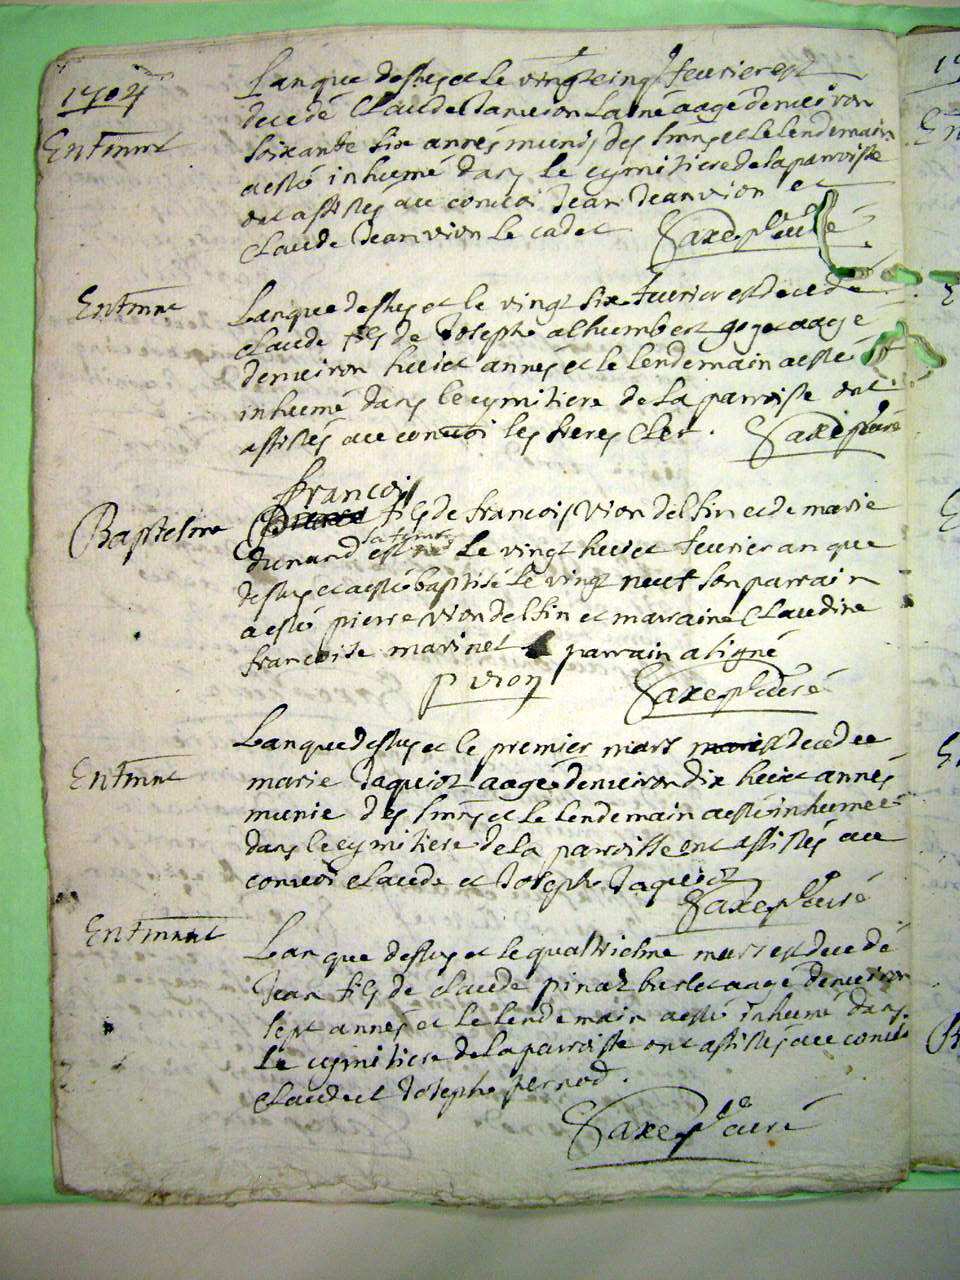 1704
Enterrmt
Lan que dessus et le vingt cinq feurier est
decedé Claude Janvion Lainé aagé denuiron
soixante six annés munis des smns et le lendemain
a esté inhumé dans le cymitiere de la parroisse
ont assistés au conuoi Jean Jeanvion et
Claude Jeanvion le cadet
Saxe ptre curé
Entrmnt
Lan que dessus et le vingt six feurier est decedé
Claude fils de Joseph alhumbert aagé
denuiron huict annés et le lendemain a esté
inhumé dans le cymitiere de la parroisse ont
assistés au conuoi les freres Clet.
Saxe ptre curé
Baptesme
francois
fils de francois Vion delfin et de marie
dunand est né le vingt huict feurier an que
dessus et a esté baptisé le vingt neuf son parrain
a esté pierre Vion delfin et marraine Claudine
francoise marinet parrain a signé
p vion
Saxe ptre curé
Entrmnt
Lan que dessus et le premier mars est decedee
marie Jaquiot aagé denuiron dix huict annés
munie des smns et le lendemain a esté inhumeé
dans le cymitiere de la parroisse ont assistés au
conuoi Claude et Joseph Jaquiot
Saxe ptre curé
Entrmnt
Lan que dessus et le quatriesme mars est decedé
Jean fils de Claude pinaz aagé denuiron
sept annés et le lendemain a esté inhumé dans
le cymitiere de la parroisse ont assistés au conuoi
Claude et Joseph pernod.
Saxe ptre curé